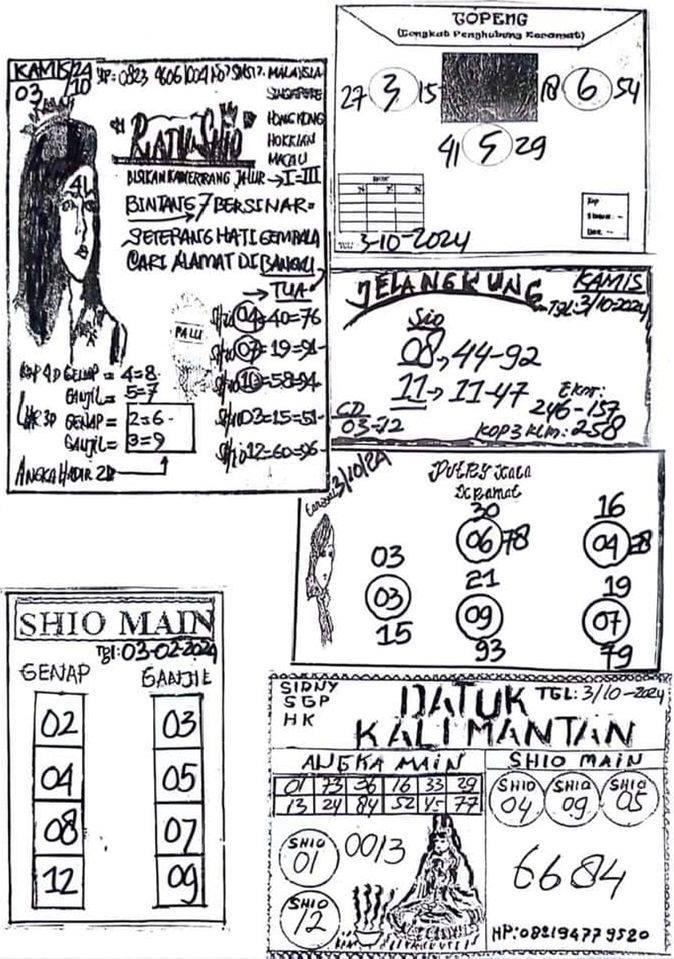 KAMIS/24
03/10
MALAYSIA
SINGAPORE
HONGKONG
HOKKIAN
MACAU
"RATU SHIO
JALUR → I=III
BINTANG 7 BERSINAR=
SETERANG HATI GEMBALA
CARI ALAMAT DI BANGKU
→ TUA
4L
PALU
Shio 04=40=76
Shio 07=19=91
Shio 10=58=94
Shio 03=15=51
Shio 12=60=96
KOP 4D GENAP = 4=8
GANJIL= 5=7
GENAP = 2=6
GANJIL= 3=9
ANGKA HADIR 2D
TOPENG
(Tongkat Penghubung Keramat)
27 3 15
18 6 54
41 5 29
3-10-2024
JELANGKUNG
KAMIS
TGL:3/10-2024
Sio
08, 44-92
11→ 11-47
Ekor:
246-157
CD
03-12
KOP3 KLM: 258
3/10/24
PUTRY KACA
Keramat
30 16
06 78 04 28
03
21 19
03
09 07
15
93 79
SHIO MAIN
Tgl:03-02-2024
GENAP GANJIL
02 03
04 05
08 07
12 09
SIDNY
SGP
HK
DATUK
KALIMANTAN
TGL:3/10-2024
ANGKA MAIN
01 73 36 16 33 29
13 24 84 52 45 77
SHIO 01
0013
SHIO 12
SHIO MAIN
SHIO 04 SHIO 09 SHIO 05
6684
HP:082194779520